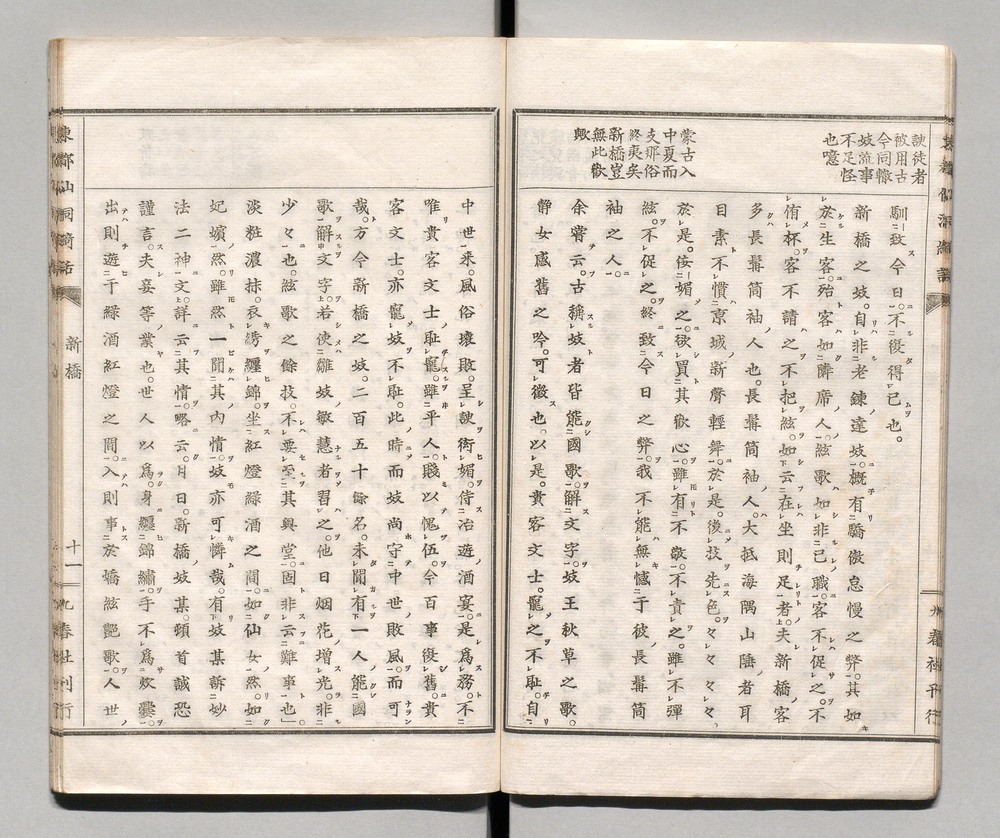 諛徒者
被用古
今同轍
妓流事
不足怪
也噫
蒙古入
中夏而
支那俗
終夷矣
新橋豈
無此歟
歟
馴致今日。不復得已也。
新橋之妓。自非老鍊達妓。概有驕傲怠慢之弊。其如
於生客。殆客如障席人。絃歌如非己職。客不促之。不
侑杯。客不請之。不把絃。如云在坐則足者。夫新橋客
多長髯筒袖人也。長髯筒袖人。大抵海隅山陲者耳
目素不慣京城新聲輕舞。於是。後技先色。々々々。
於是。侫媚之。欲買其歡心。雖有不敬。不責之。雖不彈
絃。不促之。終致今日之弊。我不能無憾于彼長髯筒
袖之人。
余嘗云。古稱妓者皆能國歌。解文字。妓王秋草之歌。
靜女感舊之吟。可徵也。以是。貴客文士。寵之不耻。自
中世來。風俗壞敗。呈諛衒媚。侍冶遊酒宴。是爲務。不
唯貴客文士耻寵。雖平人。賤以愧伍。今百事復舊。貴
客文士亦寵妓不耻。此時而妓尚守中世敗風。而可
哉。方今新橋之妓。二百五十餘名。未聞有一人能國
歌解文字。若使雛妓敏慧者習之。他日烟花增光。非
少々也。絃歌之餘技。不要至其興堂。固非云難事也
淡粧濃抹。衣綉纏錦。坐紅燈綠酒之間。如仙女然。如
妃嬪然。雖然一聞其內情。妓亦可憐哉。有妓某訴妙
法二神文。詳云其情。略云。月日。新橋妓某。頓首誠恐
謹言。夫妾等業也。世人以爲身纏錦繡。手不爲炊爨。
出則遊于綠酒紅燈之間。入則事於嬌絃艷歌。人世
新橋
十一
九春社刊行